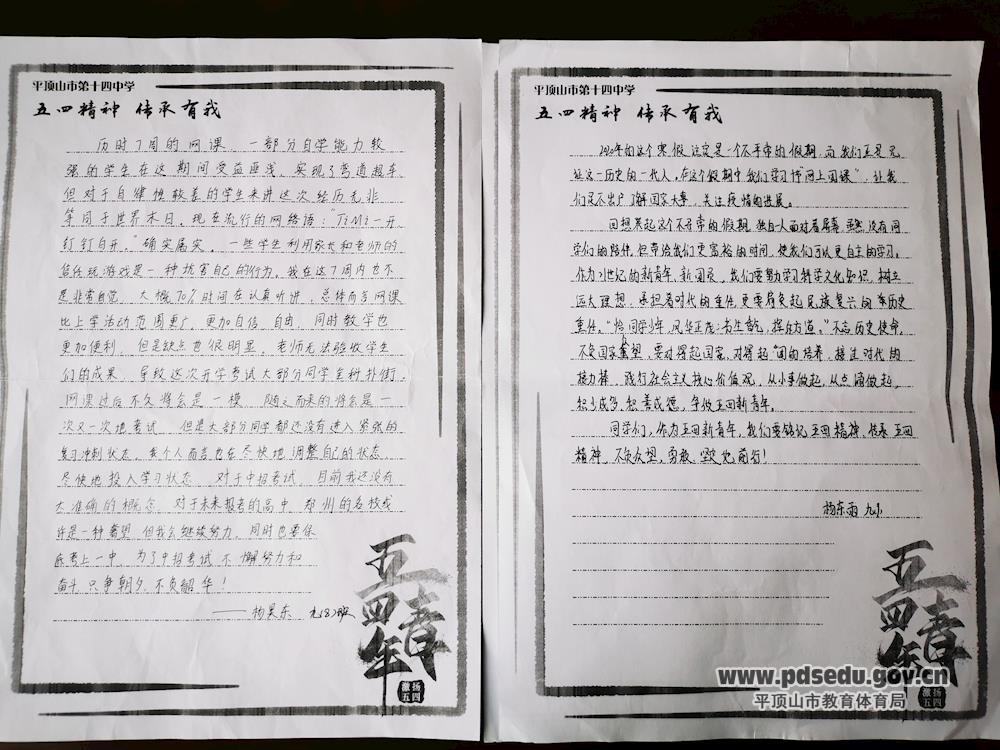 平顶山市第十四中学
五四精神 传承有我
历时7周的网课，一部分自学能力较
强的学生在这期间受益匪浅，实现了弯道超车，
但对于自律性较差的学生来讲这次经历无非
等同于世界末日。现在流行的网络语："一开
钉钉自开。"确实属实。一些学生利用家长和老师的
信任玩游戏是一种坑害自己的行为，我在这7周内也不
是非常自觉，大概70%时间在认真听讲，总结而言网课
比上学活动范围更广，更加自信、自由，同时教学也
更加便利，但是缺点也很明显，老师无法验收学生
们的成果，导致这次开学考试大部分同学全科扑街。
网课过后不久将会是一模，随之而来的将会是一
次又一次地考试，但是大部分同学都还没有进入紧张的
复习冲刺状态，我个人而言也在尽快地调整自己的状态，
尽快地投入学习状态，对于中招考试，目前我还没有
太准确的概念，对于未来报考的高中，郑州的名校或
许是一种奢望，但我会继续努力，同时也要保
底考上一中，为了中招考试不懈努力和
奋斗，只争朝夕，不负韶华！
——杨昊东 九(8)班
五四青年
激扬五四
平顶山市第十四中学
五四精神 传承有我
2020年的这个寒假注定是一个不平常的假期，而我们正是见
证这一历史的一代人。在这个假期中我们学习了"网上团课"，让我
们足不出户了解国家大事，关注疫情的进展。
回想起这个不寻常的假期，独自一人面对着屏幕，虽然没有同
学们的陪伴，但带给我们更富裕的时间，使我们可以更自主的学习。
作为21世纪的新青年、新团员，我们要努力学习科学文化知识，树立
远大理想，承担着时代的重任，更要肩负起民族复兴的历史
重任。"恰同学少年，风华正茂；书生意气，挥斥方遒。"不忘历史使命，
不负国家重望，要对得起国家、对得起团的培养，接过时代的
接力棒，践行社会主义核心价值观，从小事做起，从点滴做起，
积少成多，积善成德，争做五四新青年。
同学们，作为五四新青年，我们要铭记五四精神、传承五四
精神，不负众望，勇敢、坚定地前行！
杨东雨
五四青年
激扬五四
www.pdsedu.gov.cn
平顶山市教育体育局